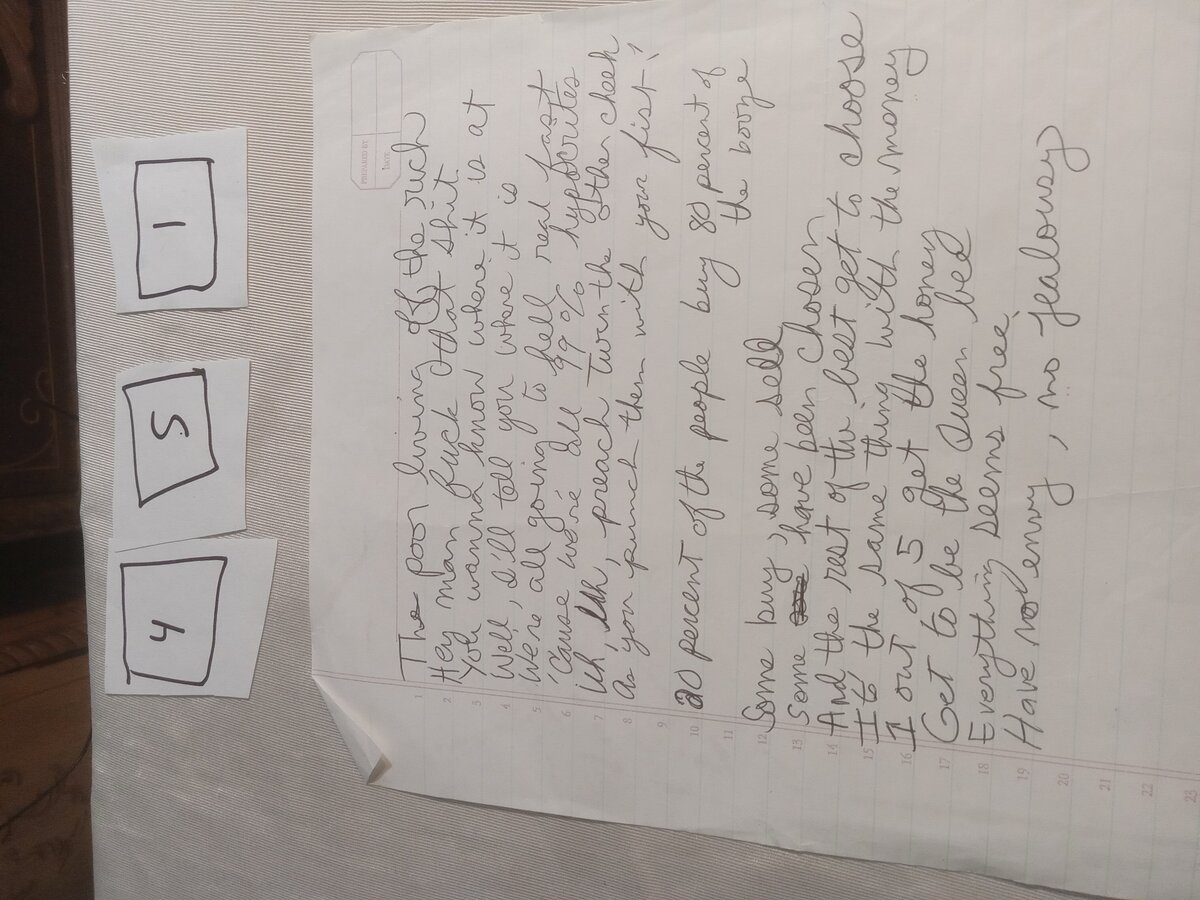 4 5 1
PREPARED BY
DATE
1 The poor living off the rich
2 Hey man fuck that shit
3 You wanna know where it is at
4 Well, I'll tell you where it is
5 We're all going to hell real fast
6 'Cause we're all 99% hypocrites
7 Uh, uh, preach Turn the other cheek
8 As you punch them with
9 your fist!
10 20 percent of the people buy 80 percent of
11 the booze
12 Some buy, some sell
13 Some have been chosen
14 And the rest of the best get to choose
15 It's the same thing with the money
16 1 out of 5 get the honey
17 Get to be the Queen bed
18 Everything seems free
19 Have no envy, no jealousy
20
21
22
23